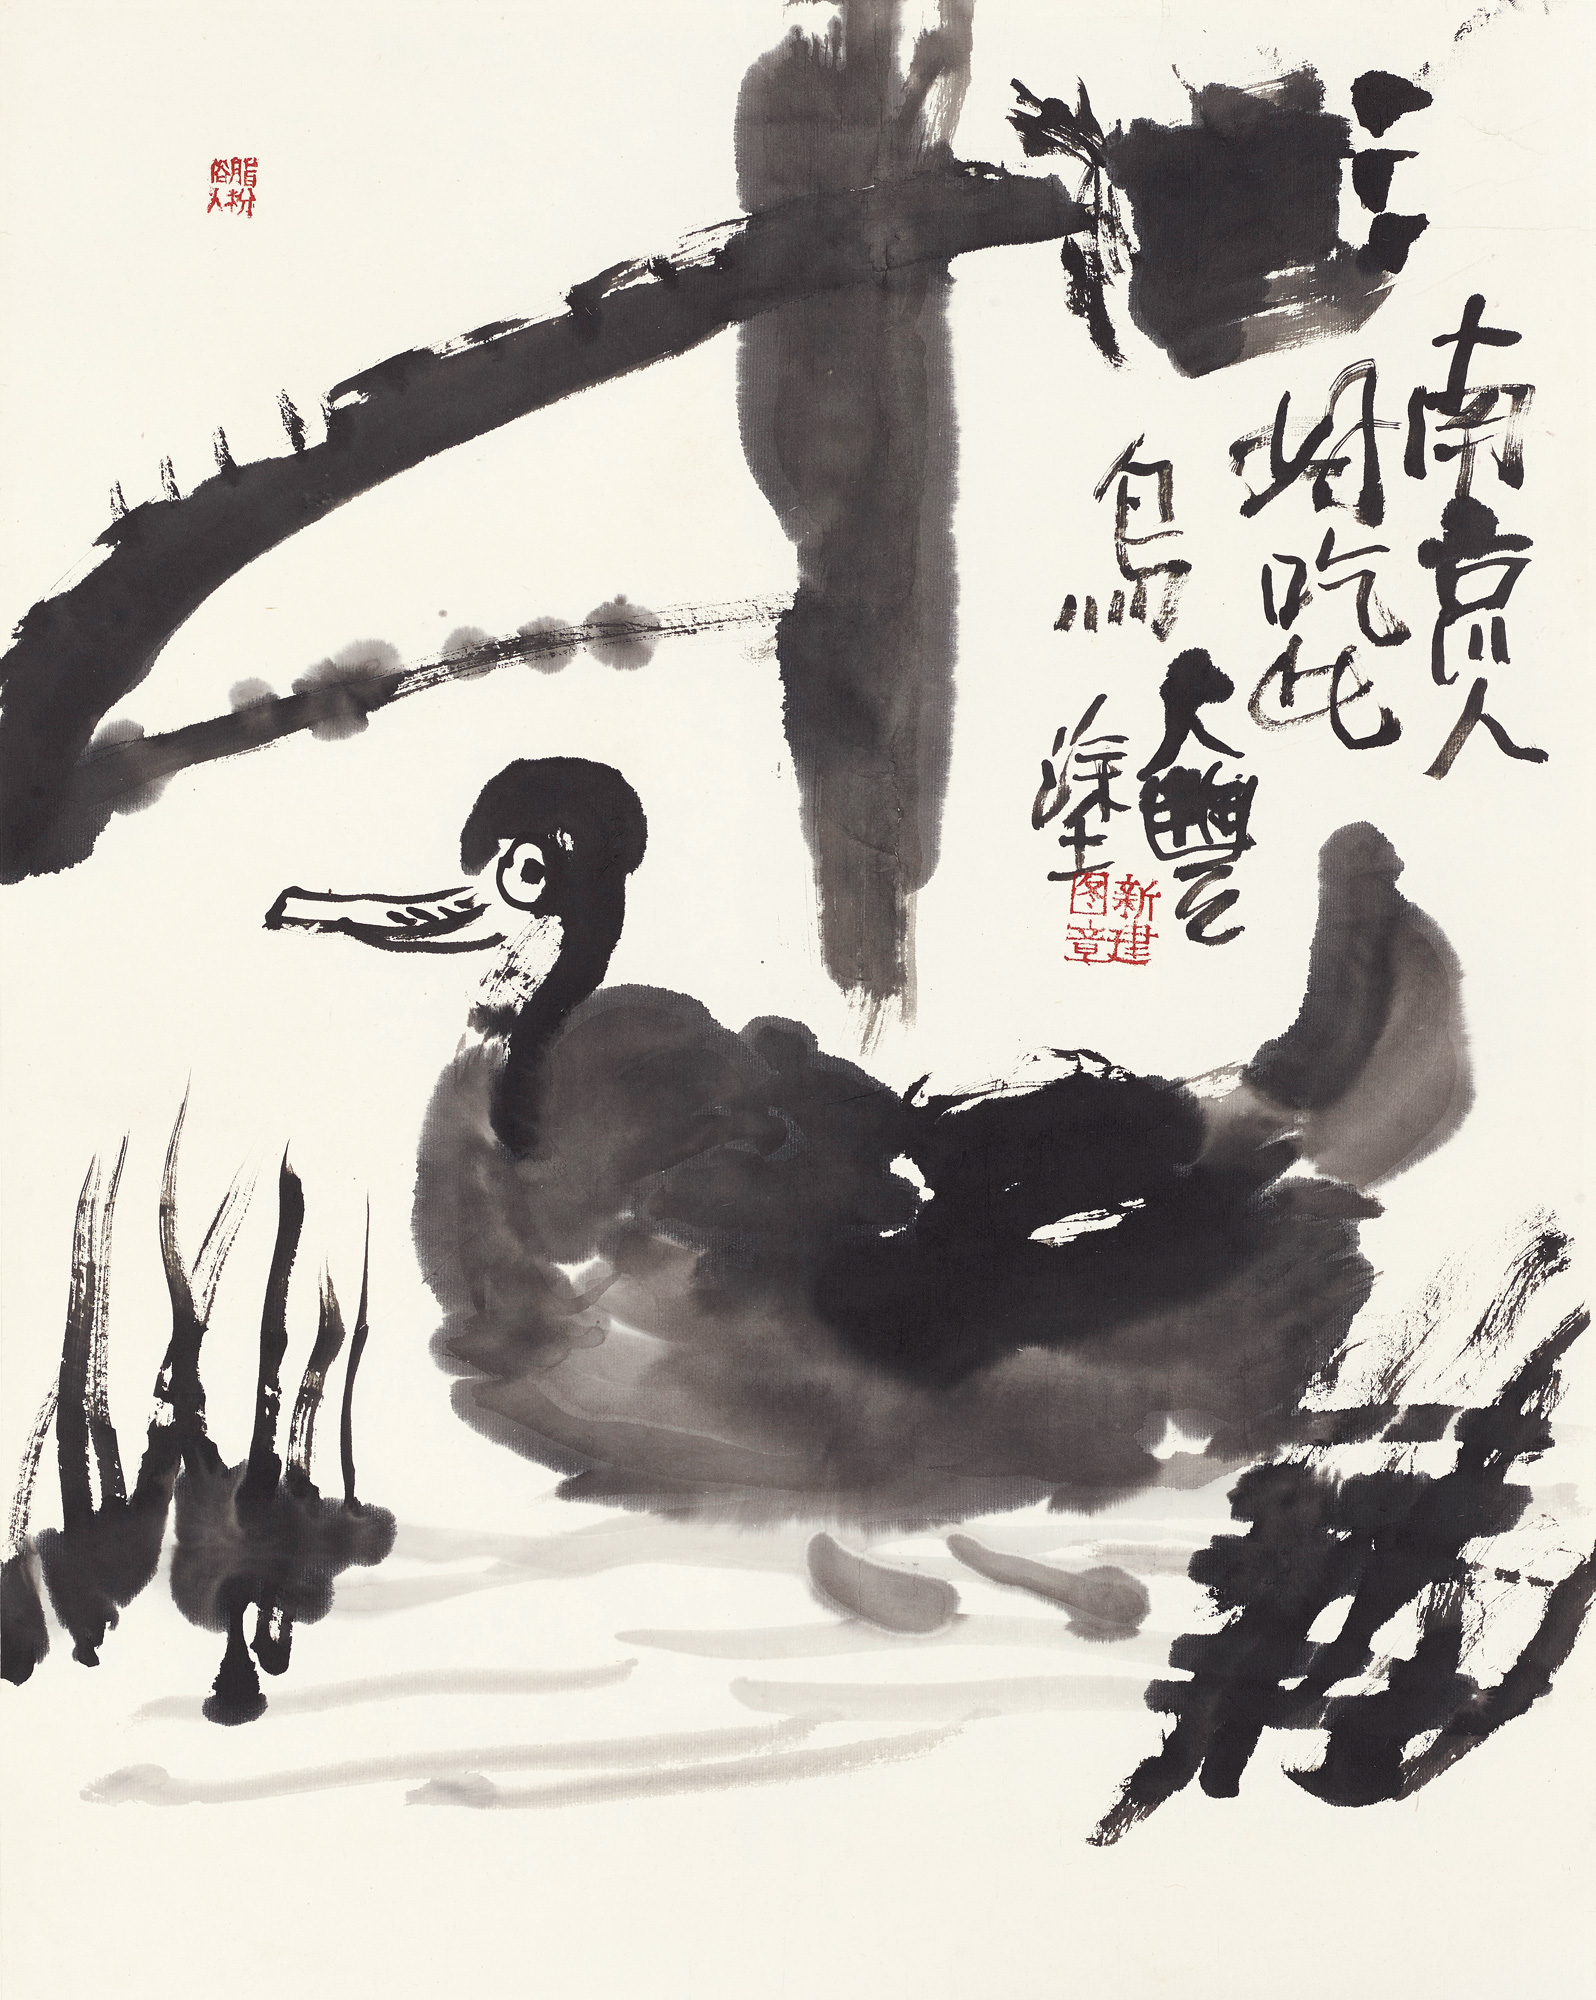 南京人
吃此
鳥
大豐
塗
新建
图章
脂粉
俗人